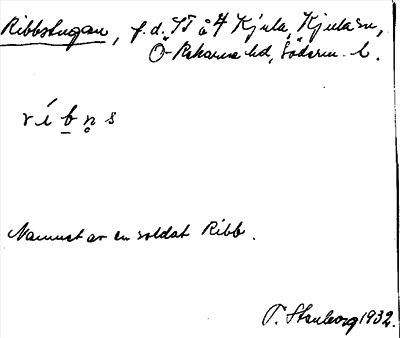 Ribbstugan, f.d. ST å 4 Kjula, Kjula sn,
Ö-Rekarne hd, Söderm. l.
ríbn̥s
Namnet av en soldat Ribb.
T. Stenborg 1932.